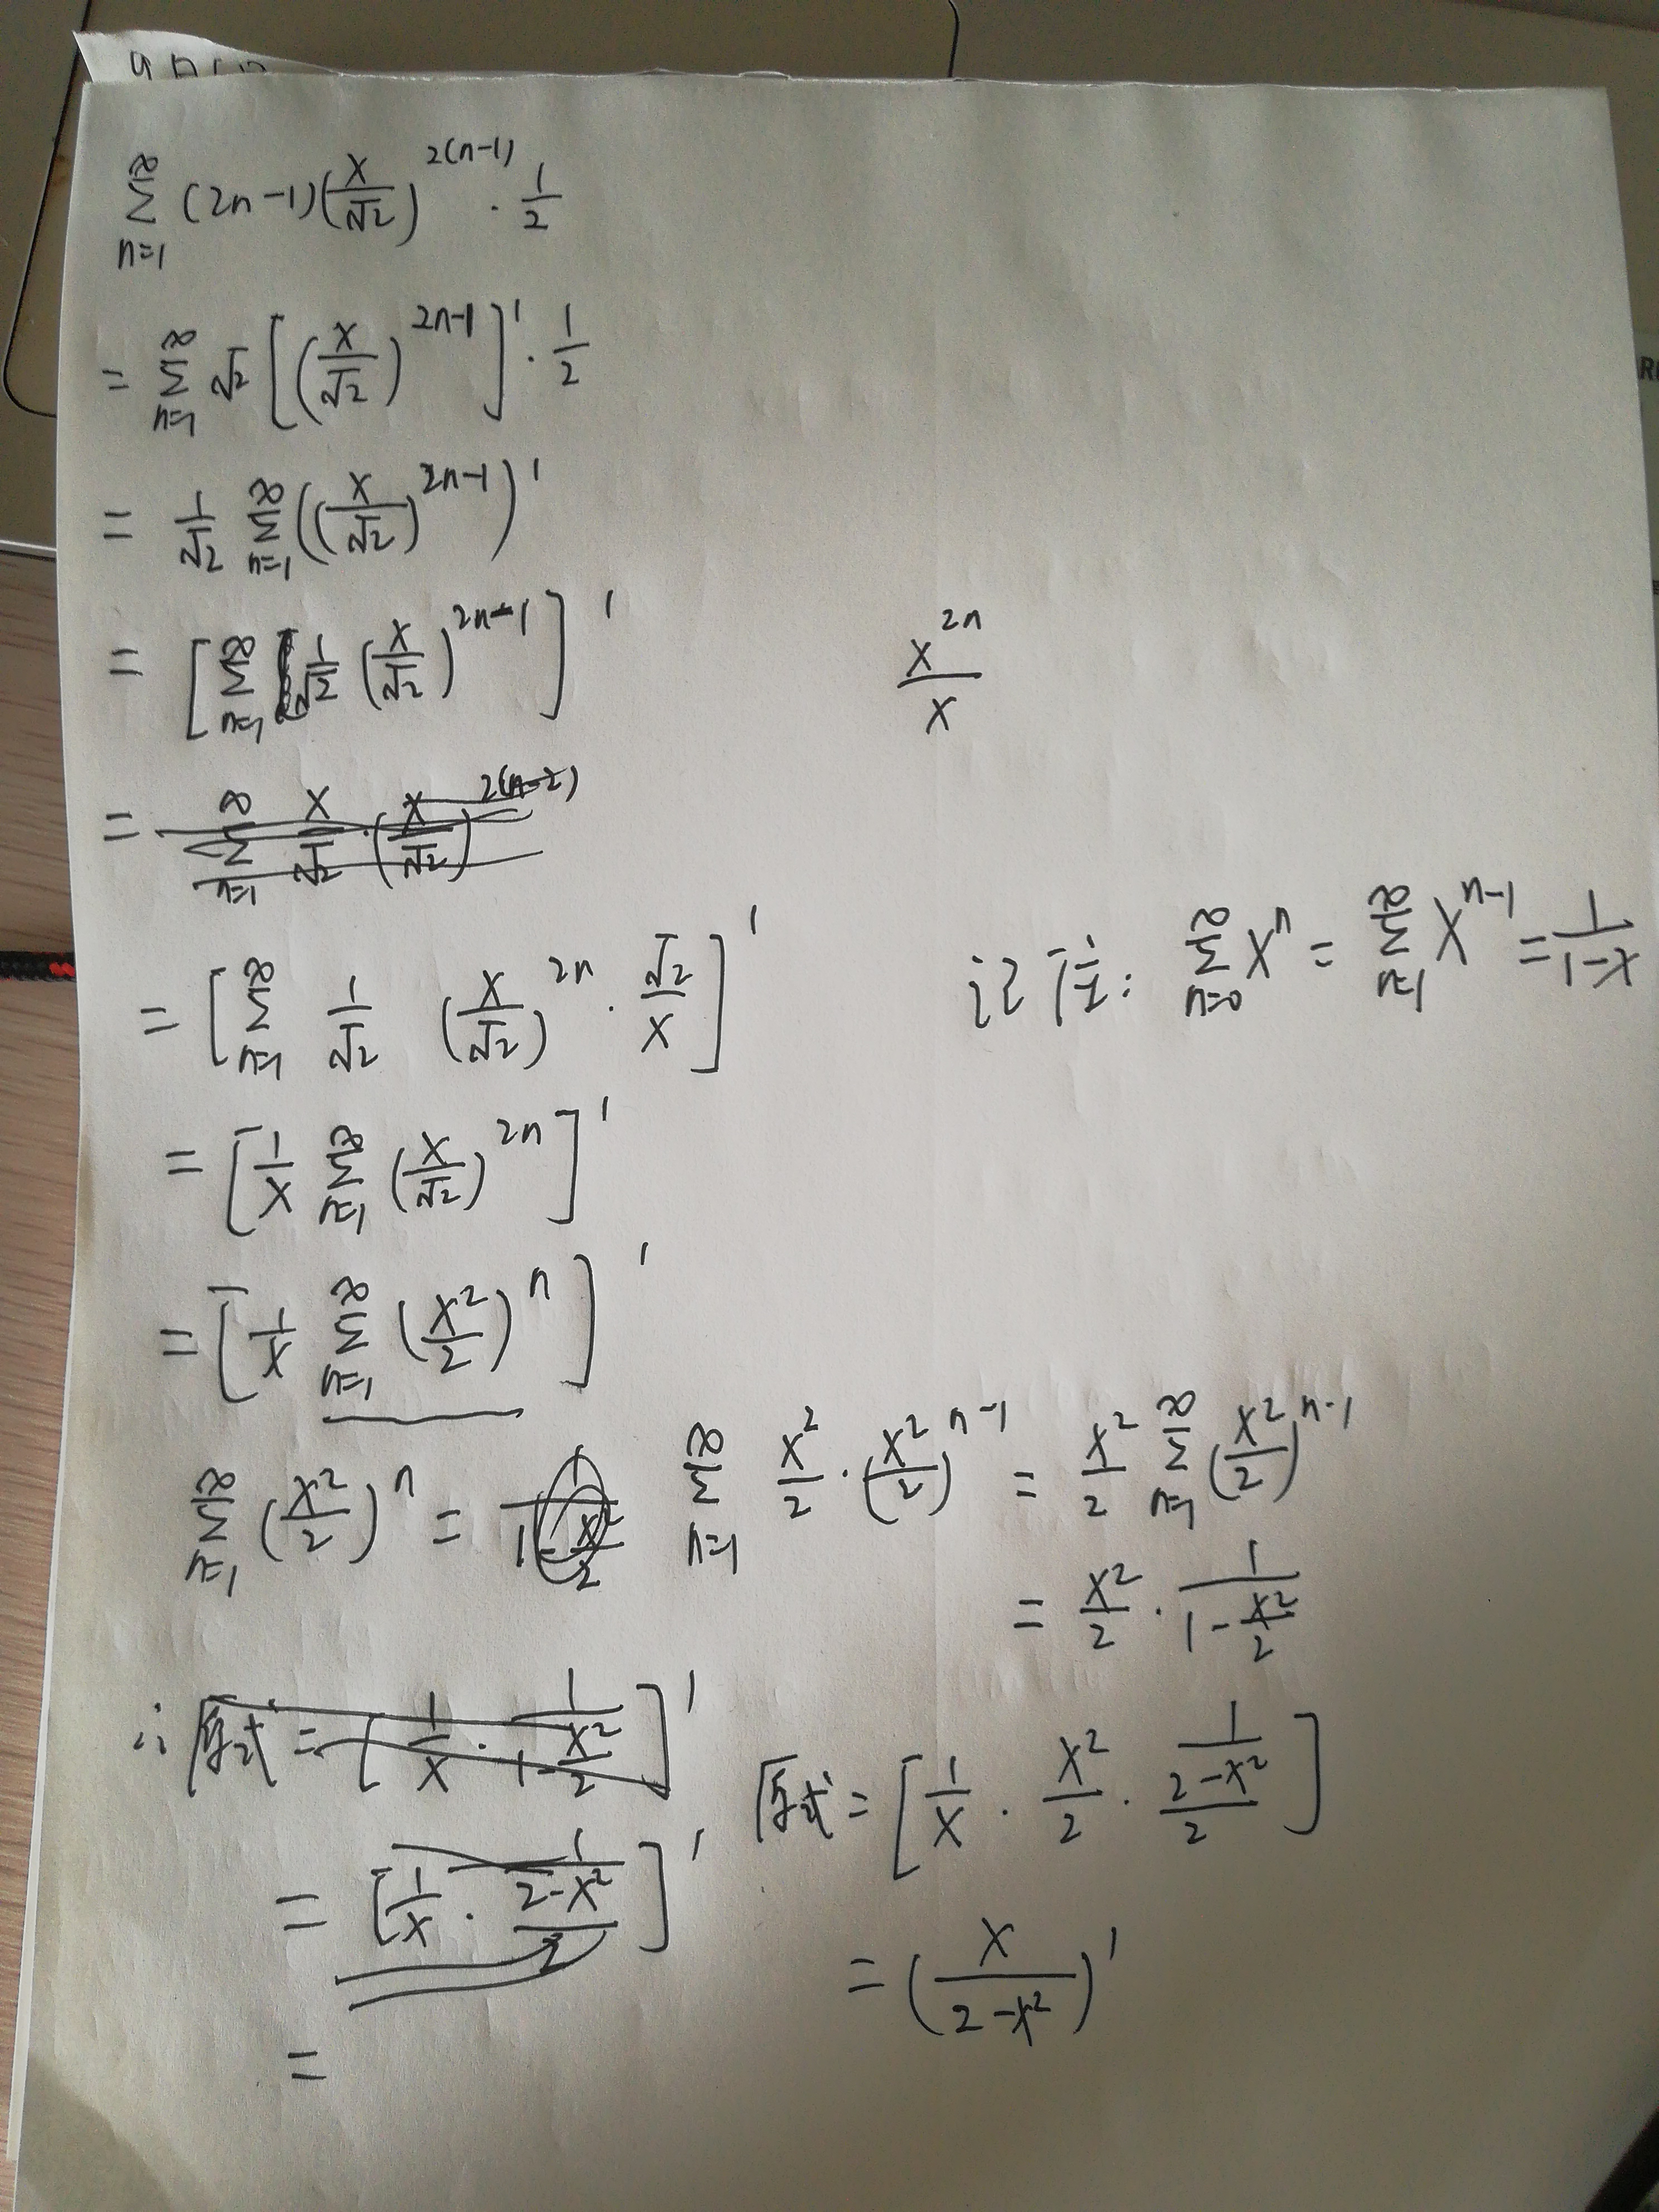 ∑_{n=1}^{∞} (2n-1)(x/√2)^{2(n-1)} · 1/2
= ∑_{n=1}^{∞} √2 [(x/√2)^{2n-1}]' · 1/2
= 1/√2 ∑_{n=1}^{∞} ((x/√2)^{2n-1})'
= [∑_{n=1}^{∞} 1/√2 (x/√2)^{2n-1}]'
x^{2n}/x
= ∑_{n=1}^{∞} x/√2 · (x/√2)^{2(n-2)}
= [∑_{n=1}^{∞} 1/√2 (x/√2)^{2n} · √2/x]'
记住: ∑_{n=0}^{∞} x^n = ∑_{n=1}^{∞} x^{n-1} = 1/(1-x)
= [1/x ∑_{n=1}^{∞} (x/√2)^{2n}]'
= [1/x ∑_{n=1}^{∞} (x²/2)^n]'
∑_{n=1}^{∞} (x²/2)^n = 1/(1-x²/2) ∑_{n=1}^{∞} x²/2 · (x²/2)^{n-1} = x²/2 ∑_{n=1}^{∞} (x²/2)^{n-1}
= x²/2 · 1/(1-x²/2)
∴ 原式 = [1/x · 1/(1-x²/2)]'
= [1/x · 1/((2-x²)/2)]'
=
原式 = [1/x · x²/2 · 1/((2-x²)/2)]
= (x/(2-x²))'